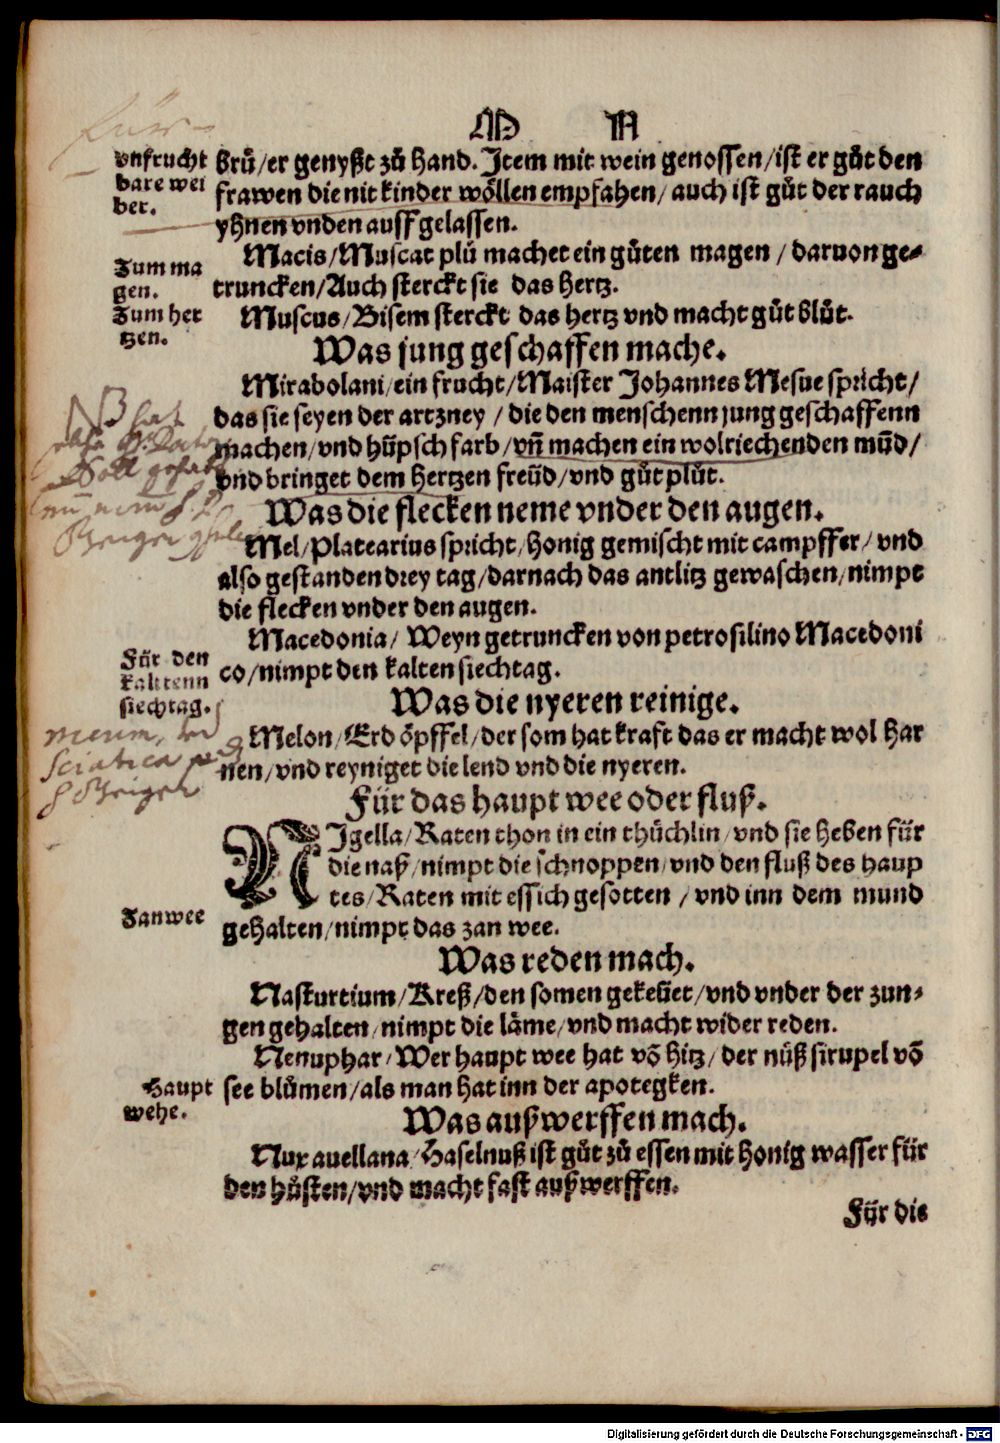 M N
vnfrucht
bare wei
ber.
brů/er genyßt zů hand. Item mit wein genossen/ist er gůt den
frawen die nit kinder wöllen empfahen/auch ist gůt der rauch
yhnen vnden auff gelassen.
Zum ma
gen.
Macis/Muscat plů machet ein gůten magen/daruon ge-
truncken/Auch sterckt sie das hertz.
Zum her
tzen.
Muscus/Bisem sterckt das hertz vnd macht gůt blůt.
Was jung geschaffen mache.
Mirabolani/ein frucht/Maister Johannes Mesue spricht/
das sie seyen der artzney/die den menschenn jung geschaffenn
machen/vnd hüpsch farb/vñ machen ein wolriechenden mũd/
vnd bringet dem hertzen freüd/vnd gůt plůt.
Was die flecken neme vnder den augen.
Mel/Platearius spricht/honig gemischt mit campffer/vnd
also gestanden drey tag/darnach das antlitz gewaschen/nimpt
die flecken vnder den augen.
Für den
kaltenn
siechtag.
Macedonia/Weyn getruncken von petrosilino Macedoni
co/nimpt den kalten siechtag.
Was die nyeren reinige.
Sciatica
Melon/Erd öpffel/der som hat kraft das er macht wol har
nen/vnd reyniget die lend vnd die nyeren.
Für das haupt wee oder fluß.
NIgella/Raten thon in ein thüchlin/vnd sie heben für
die naß/nimpt die schnoppen/vnd den fluß des haup
tes/Raten mit essich gesotten/vnd inn dem mund
Zanwee
gehalten/nimpt das zan wee.
Was reden mach.
Nasturtium/Kreß/den somen gekeüet/vnd vnder der zun-
gen gehalten/nimpt die läme/vnd macht wider reden.
Nenuphar/Wer haupt wee hat võ hitz/der nüß sirupel võ
Haupt
wehe.
see blůmen/als man hat inn der apotegken.
Was außwerffen mach.
Nux auellana/Haselnuß ist gůt zů essen mit honig wasser für
den hůsten/vnd macht fast außwerffen.
Für die
Digitalisierung gefördert durch die Deutsche Forschungsgemeinschaft - DFG